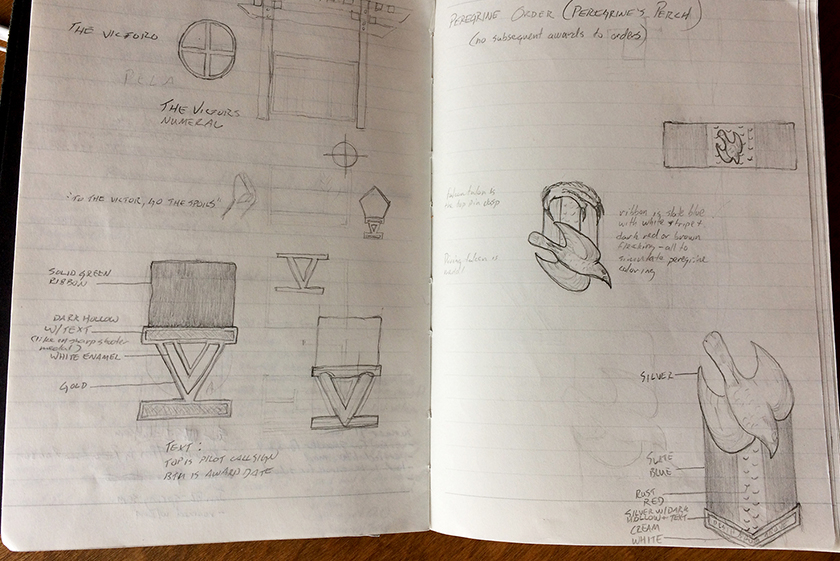 THE VICTORO
RELA
THE VICTORS
NUMERAL
"TO THE VICTOR, GO THE SPOILS"
SOLID GREEN
RIBBON
DARK HOLLOW
W/TEXT
(like in sharp shooter
medal)
WHITE ENAMEL
GOLD
TEXT:
TOP IS PILOT CALLSIGN
BTM IS AWARD DATE
PEREGRINE ORDER (PEREGRINE'S PERCH)
(no subsequent awards to orders)
talon is
the top pin drop
Diving falcon is
medal
ribbon is slate blue
with white stripe &
dark red or brown
flecking - all to
simulate peregrine
coloring
SILVER
SLATE
BLUE
RUST
RED
SILVER W/DARK
HOLLOW + TEXT
CREAM
WHITE